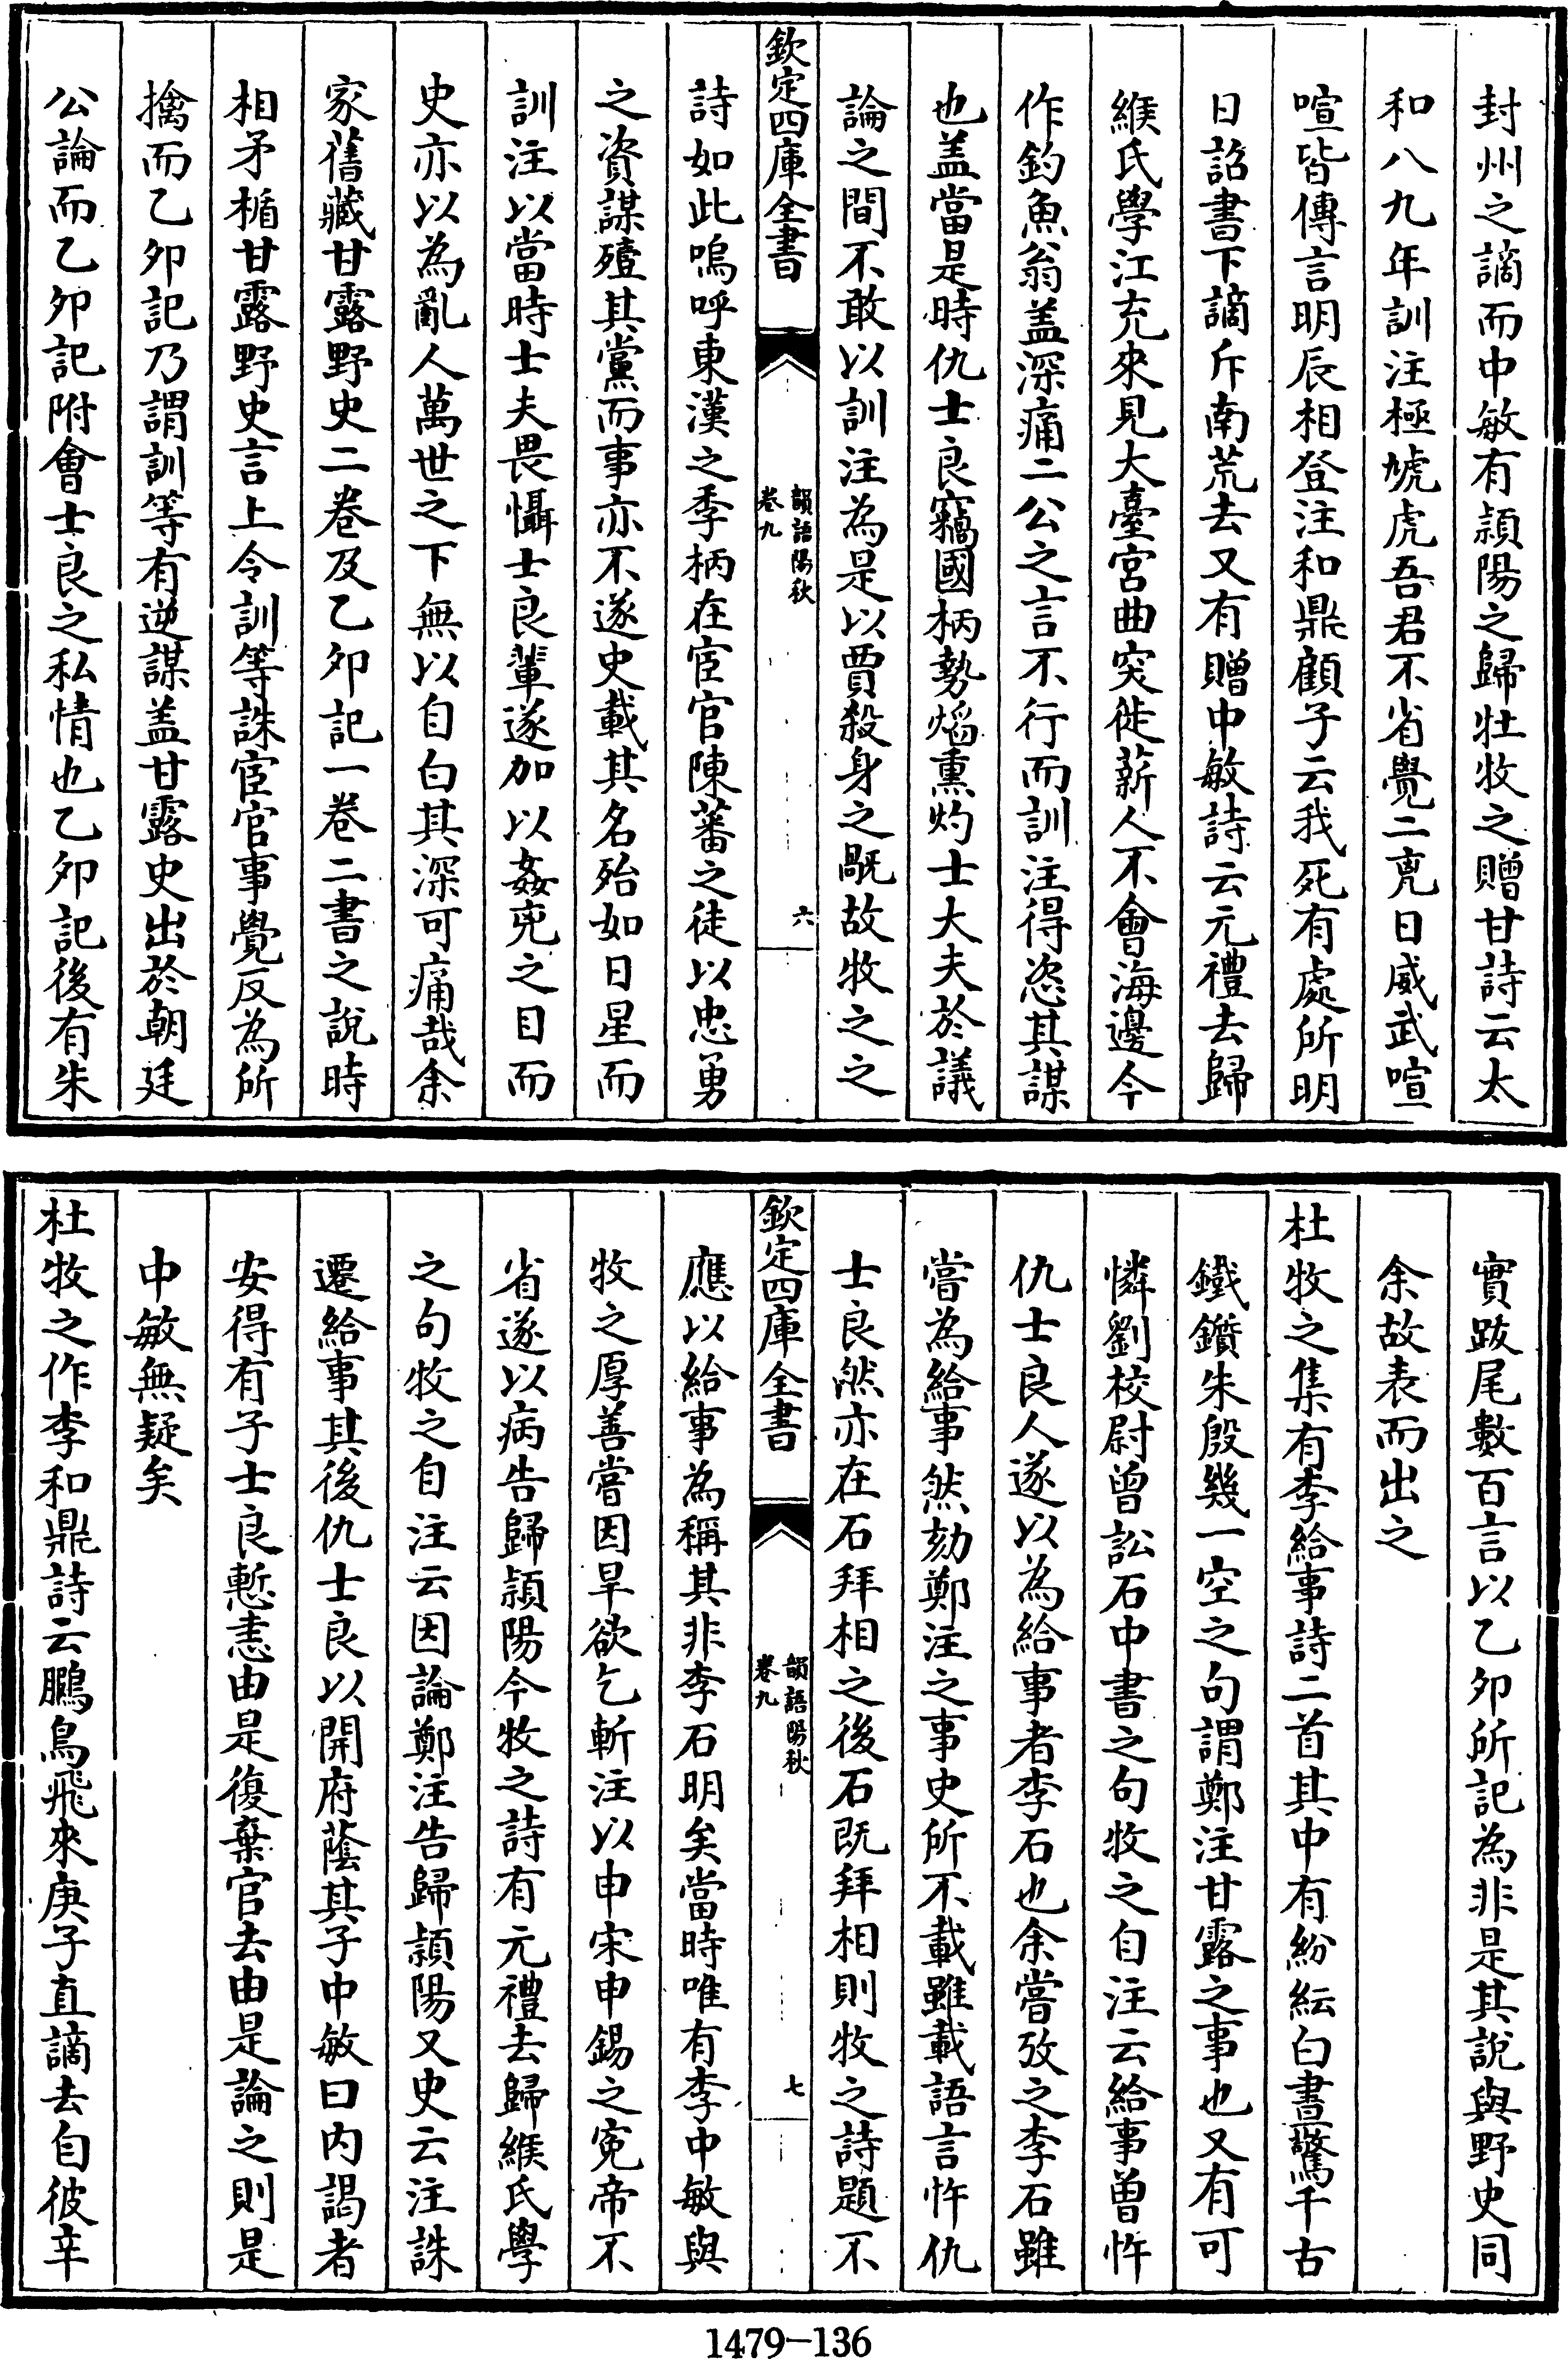 封州之謫而中敏有潁陽之歸牡牧之贈甘詩云太
和八九年訓注極虓虎吾君不省覺二兇日威武喧
喧皆傳言明辰相登注和鼎顧子云我死有處所明
日詔書下謫斥南荒去又有贈中敏詩云元禮去歸
緱氏學江充來見大臺宮曲突徙薪人不會海邊今
作釣魚翁盖深痛二公之言不行而訓注得恣其謀
也盖當是時仇士良竊國柄勢熖熏灼士大夫於議
論之間不敢以訓注為是以賈殺身之戝故牧之之
欽定四庫全書
韻語陽秋
卷九
六
詩如此嗚呼東漢之季柄在宦官陳蕃之徒以忠勇
之資謀殪其黨而事亦不遂史載其名殆如日星而
訓注以當時士夫畏懾士良輩遂加以姦兇之目而
史亦以為亂人萬世之下無以自白其深可痛哉余
家舊藏甘露野史二卷及乙夘記一卷二書之說時
相矛楯甘露野史言上令訓等誅宦官事覺反為所
擒而乙夘記乃謂訓等有逆謀盖甘露史出於朝廷
公論而乙夘記附會士良之私情也乙夘記後有朱
實跋尾數百言以乙夘所記為非是其說與野史同
余故表而出之
杜牧之集有李給事詩二首其中有紛紜白晝驚千古
鐵鑕朱殷幾一空之句謂鄭注甘露之事也又有可
憐劉校尉曾訟石中書之句牧之自注云給事曾忤
仇士良人遂以為給事者李石也余嘗攷之李石雖
嘗為給事然劾鄭注之事史所不載雖載語言忤仇
士良然亦在石拜相之後石既拜相則牧之詩題不
欽定四庫全書
韻語陽秋
卷九
七
應以給事為稱其非李石明矣當時唯有李中敏與
牧之厚善嘗因旱欲乞斬注以申宋申錫之寃帝不
省遂以病告歸潁陽今牧之詩有元禮去歸緱氏學
之句牧之自注云因論鄭注告歸潁陽又史云注誅
遷給事其後仇士良以開府蔭其子中敏曰内謁者
安得有子士良慙恚由是復棄官去由是論之則是
中敏無疑矣
杜牧之作李和鼎詩云鵩鳥飛來庚子直謫去自彼辛
1479-136